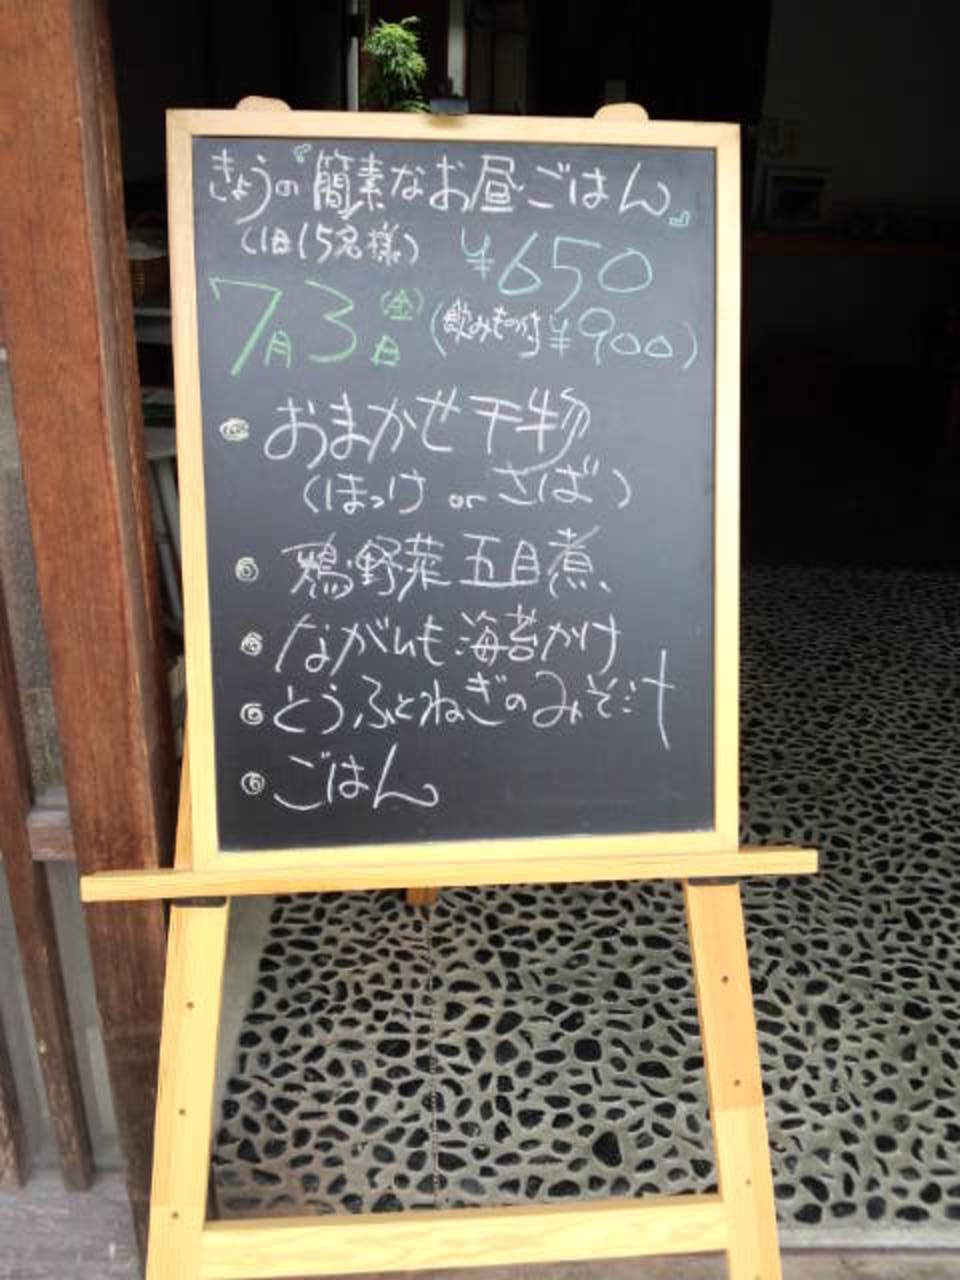 きょうの簡素なお昼ごはん
(1日15名様) ¥650
7月3日(金) (飲みもの付¥900)
おまかせ干物
(ほっけ or さば)
鶏・野菜五目煮
ながいも海苔かけ
とうふとねぎのみそ汁
ごはん